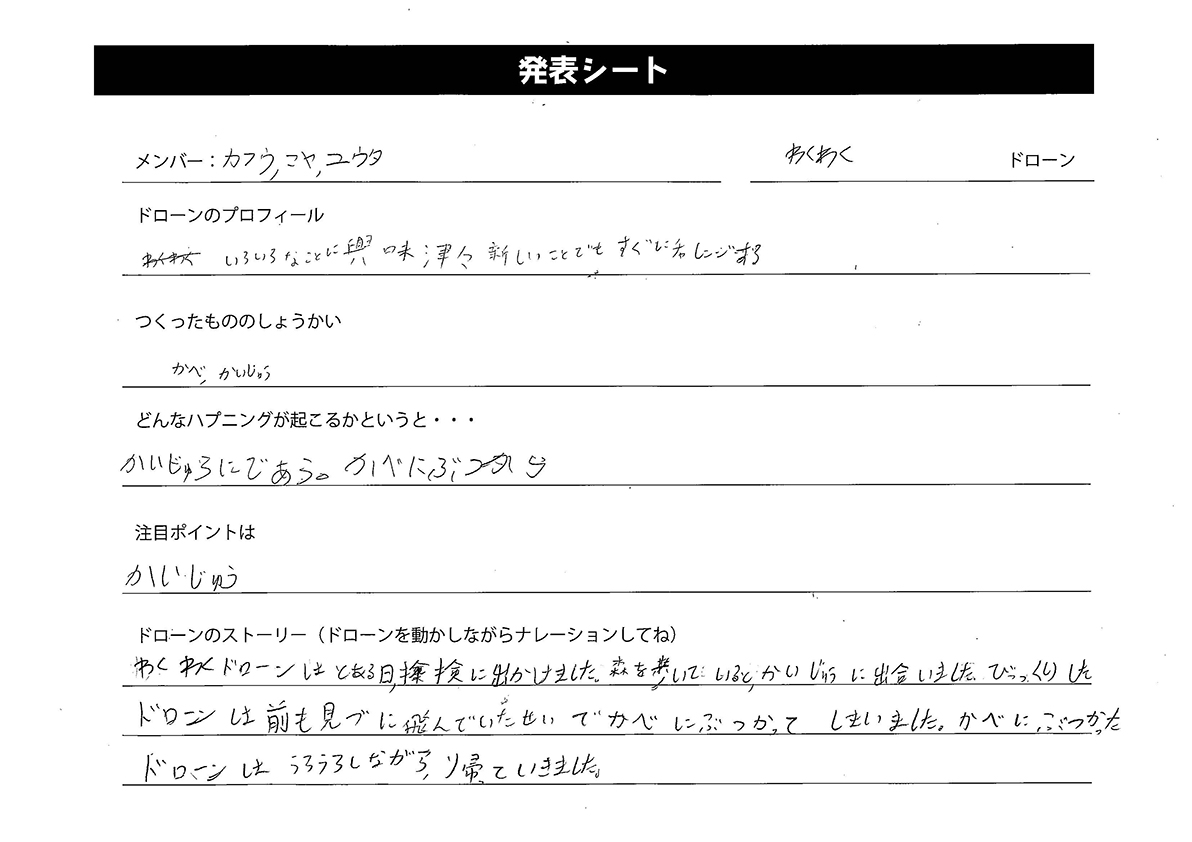 発表シート
メンバー：カフウ,マヤ,ユウタ わくわく ドローン
ドローンのプロフィール
いろいろなことに興味津々 新しいことでもすぐにチャレンジする
つくったもののしょうかい
かべ, かいじゅう
どんなハプニングが起こるかというと・・・
かいじゅうにであう。かべにぶつかる
注目ポイントは
かいじゅう
ドローンのストーリー（ドローンを動かしながらナレーションしてね）
わくわくドローンはとある日,探検に出かけました。森を歩いていると,かいじゅうに出合いました。びっくりした
ドローンは前も見づに飛んでいたせいでかべにぶつかってしまいました。かべにぶつかった
ドローンはうろうろしながら,帰っていきました。